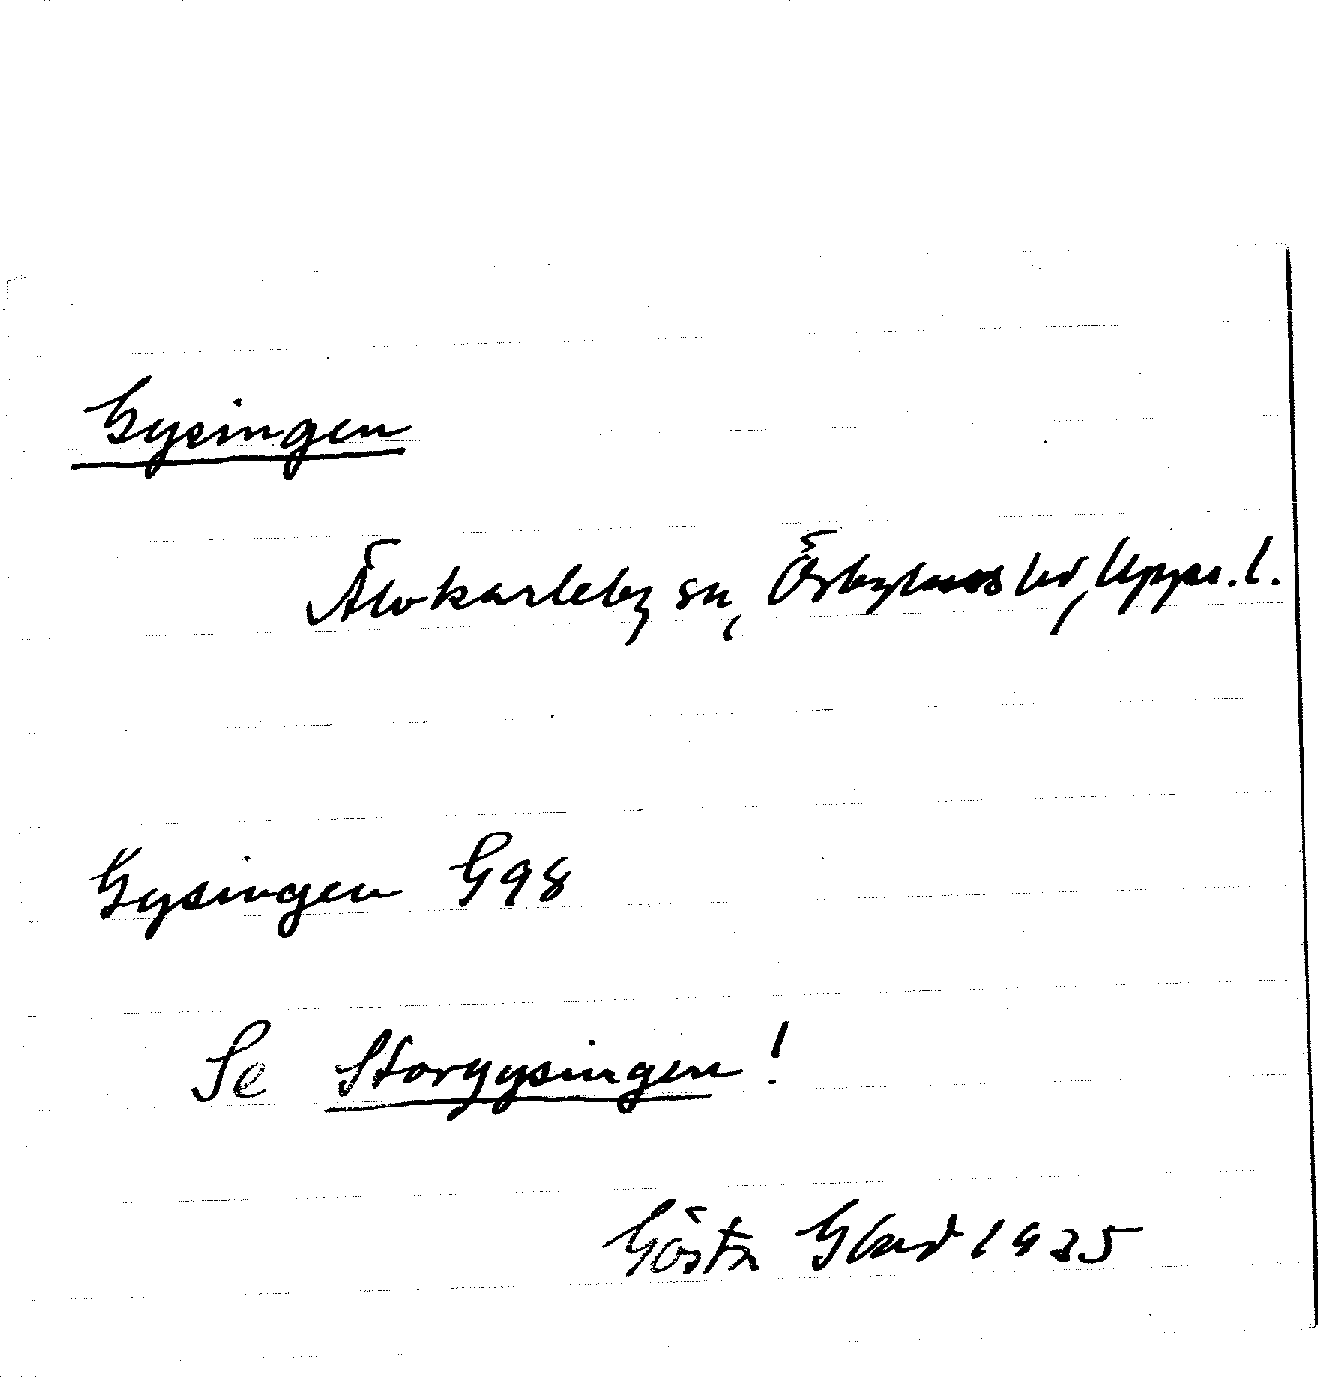 Gysingen
Älvkarleby sn, Örbyhus hd, Upps. l.
Gysingen G98
Se Storgysingen!
Gösta Glad 1925